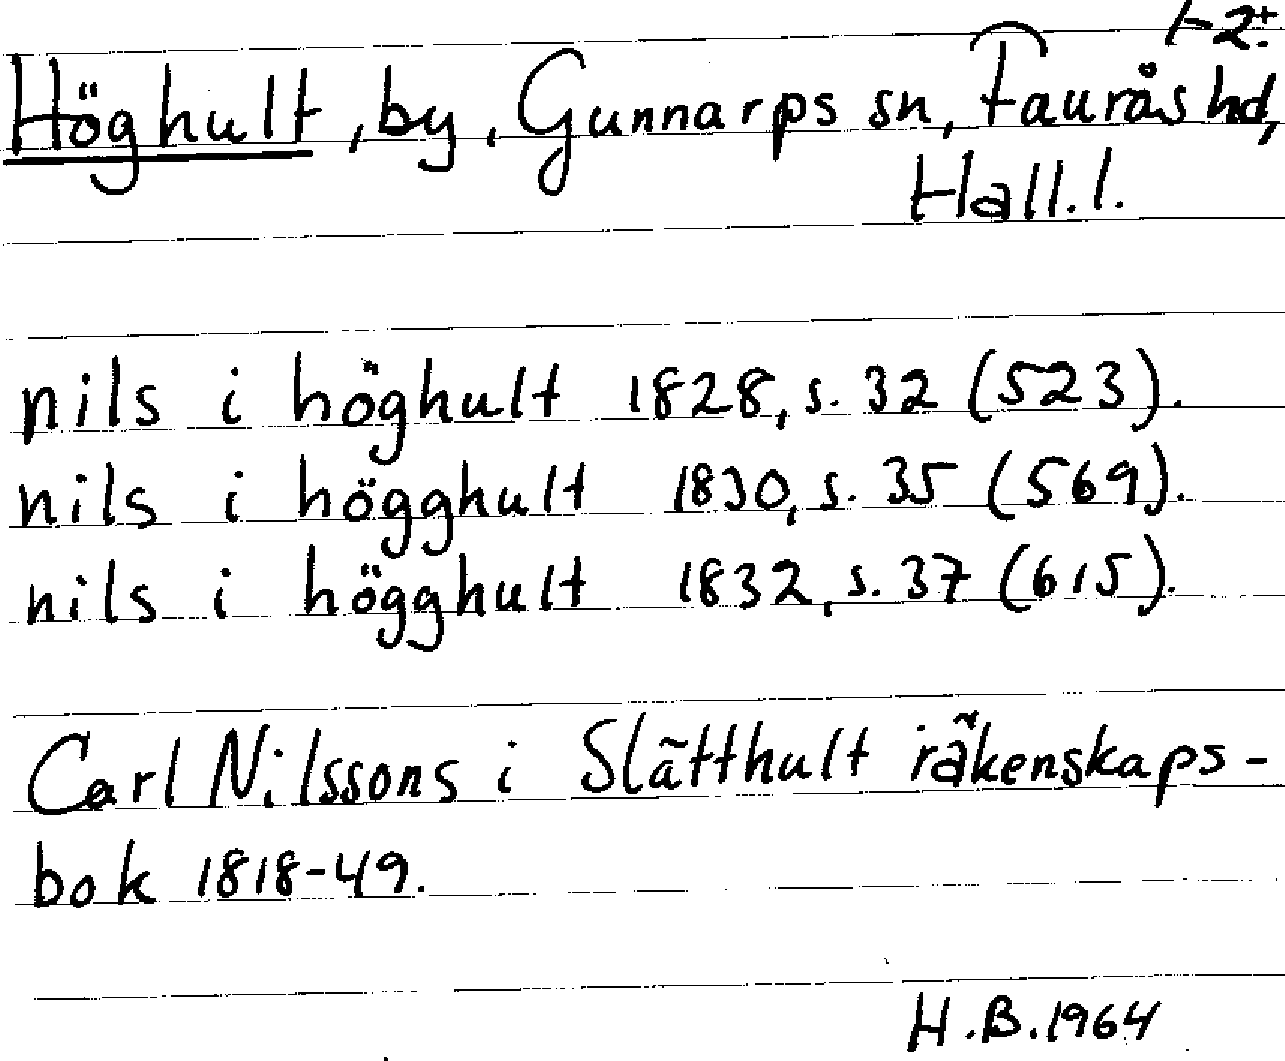 Höghult, by, Gunnarps sn, Faurås hd,
Hall. l.
nils i höghult 1828, s. 32 (523).
nils i högghult 1830, s. 35 (569).
nils i högghult 1832, s. 37 (615).
Carl Nilssons i Slätthult räkenskaps-
bok 1818-49.
H.B. 1964